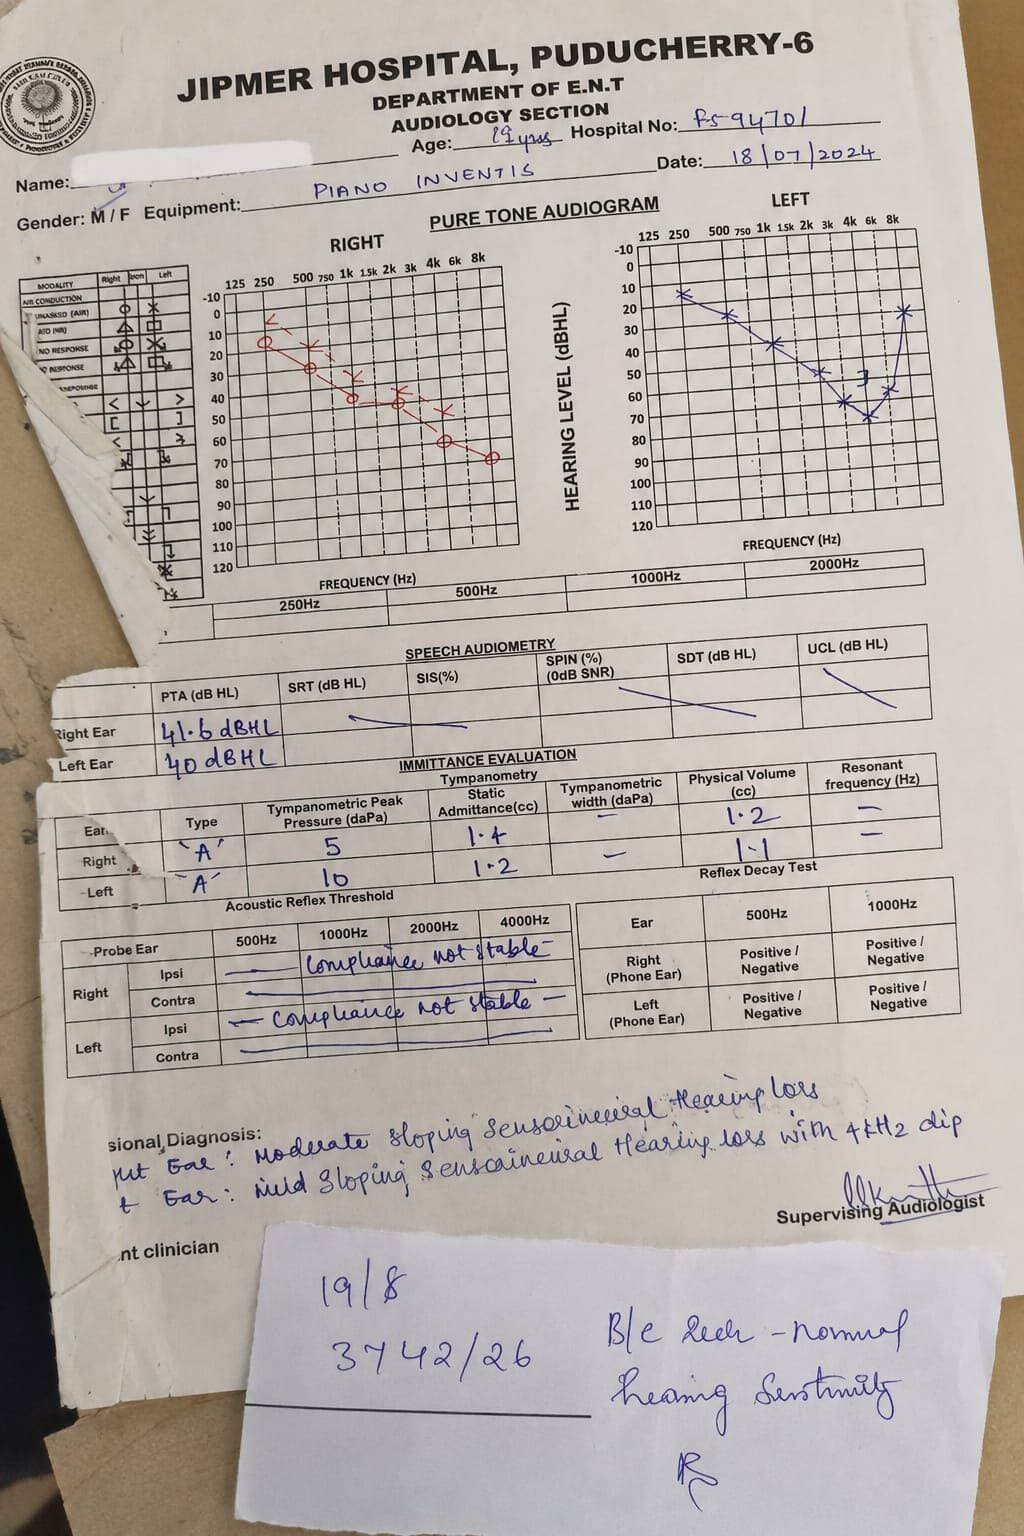 JIPMER HOSPITAL, PUDUCHERRY-6
DEPARTMENT OF E.N.T
AUDIOLOGY SECTION
Age: yrs Hospital No:
Name: Date: 18/07/2024
Gender: M / F Equipment: PIANO INVENTIS
PURE TONE AUDIOGRAM
RIGHT
LEFT
MODALITY Right Left
AIR CONDUCTION
UNASKED (AIR)
NO RESPONSE
125 250 500 750 1k 1.5k 2k 3k 4k 6k 8k
-10
0
10
20
30
40
50
60
70
80
90
100
110
120
HEARING LEVEL (dBHL)
125 250 500 750 1k 1.5k 2k 3k 4k 6k 8k
-10
0
10
20
30
40
50
60
70
80
90
100
110
120
FREQUENCY (Hz) FREQUENCY (Hz)
250Hz 500Hz 1000Hz 2000Hz
SPEECH AUDIOMETRY
PTA (dB HL) SRT (dB HL) SIS(%) SPIN (%) (0dB SNR) SDT (dB HL) UCL (dB HL)
Right Ear 41.6 dBHL
Left Ear 40 dBHL
IMMITTANCE EVALUATION
Tympanometry
Ear Type Tympanometric Peak Pressure (daPa) Static Admittance(cc) Tympanometric width (daPa) Physical Volume (cc) Resonant frequency (Hz)
Right 'A' 5 1.4 - 1.2 -
Left 'A' 10 1.2 - 1.1 -
Acoustic Reflex Threshold
Reflex Decay Test
Probe Ear 500Hz 1000Hz 2000Hz 4000Hz
Right Ipsi Compliance not stable
Contra
Left Ipsi Compliance not stable
Contra
Ear 500Hz 1000Hz
Right (Phone Ear) Positive / Negative Positive / Negative
Left (Phone Ear) Positive / Negative Positive / Negative
sional Diagnosis:
Ear: Moderate sloping Sensorineural Hearing loss
t Ear: Mild Sloping Sensorineural Hearing loss with 4kHz dip
Supervising Audiologist
nt clinician
19/8
3742/26
normal
hearing